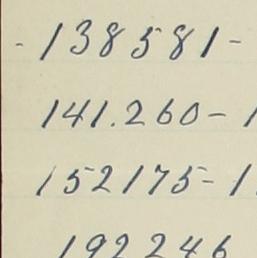 - 138581 -
141.260 - 1
152175 - 1.
192246